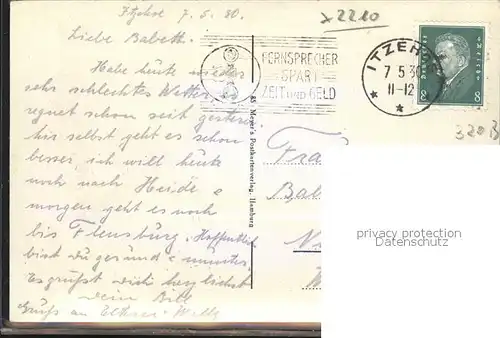 Itzehoe 7.5.30.
Liebe Babett.
Habe heute wieder
sehr schlechtes Wetter
regnet schon seit gestern
mir selbst geht es schon
besser, ich will heute
noch nach Heide &
morgen geht es noch
bis Flensburg. Hoffentlich
bist du gesund & munter.
Es grüßt dich herzlichst
dein
Gruß an Eltern Willy
x 2210
FERNSPRECHER
SPART
ZEIT UND GELD
ITZEHOE
7.5.30
11-12
* * *
8 8
Deutsches Reich
Meyer's Postkartenverlag, Hamburg
Frau
Bab
3203
privacy protection
Datenschutz